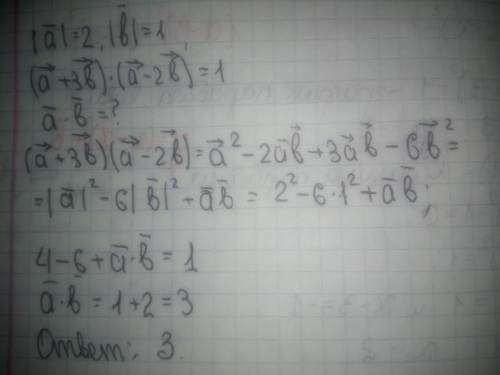 |a̅|=2, |b̅|=1,
(a⃗+3b⃗)·(a⃗-2b⃗)=1
a̅·b̅=?
(a⃗+3b⃗)(a⃗-2b⃗)=a⃗²-2a⃗b⃗+3a⃗b⃗-6b⃗²=
=|a̅|²-6|b̅|²+a̅b̅ = 2²-6·1²+a̅b̅;
4-6+a̅·b̅=1
a̅·b̅=1+2=3
Ответ: 3.